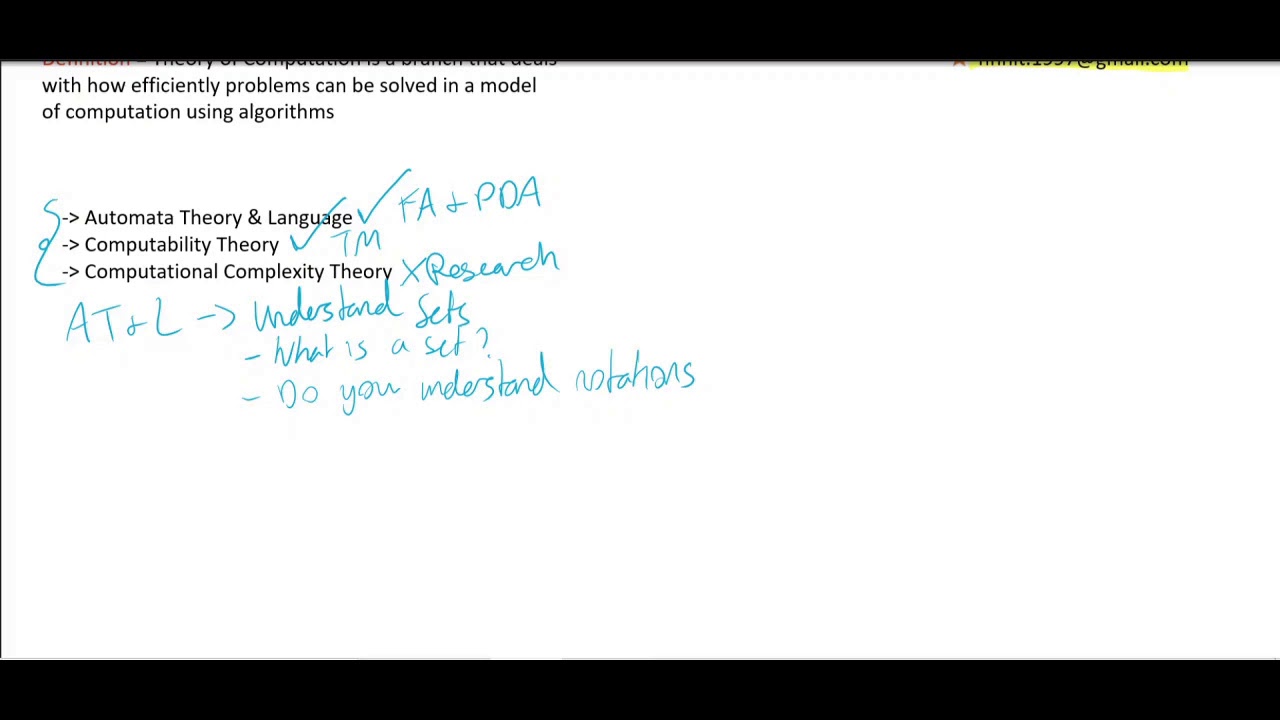 Definition – Theory of Computation is a branch that deals
with how efficiently problems can be solved in a model
of computation using algorithms
-> Automata Theory & Language ✓ FA & PDA
-> Computability Theory ✓ TM
-> Computational Complexity Theory X Research
AT & L -> Understand Sets
- What is a set?
- Do you understand notations